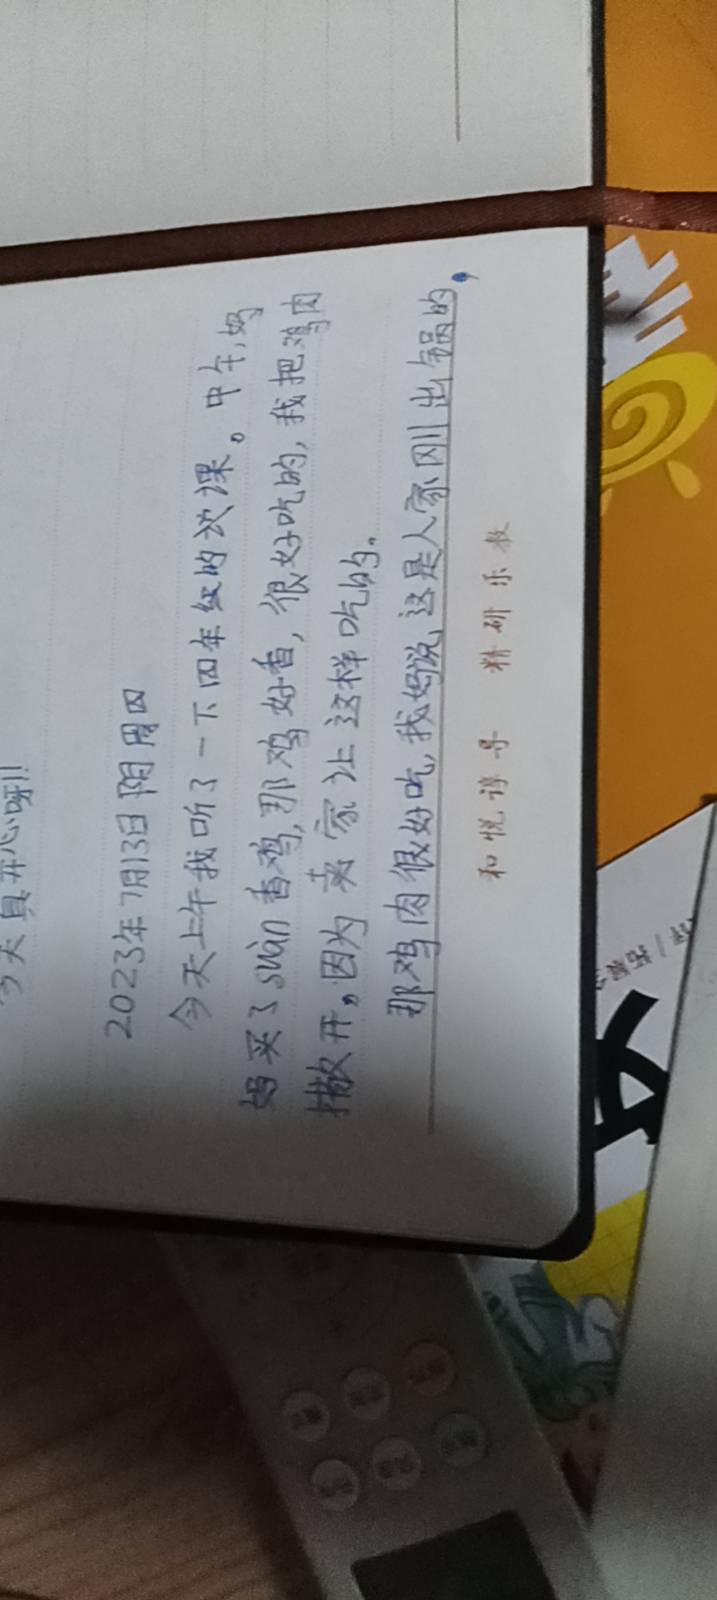 今天真开心呀!!
2023年7月13日 阴 周四
今天上午我听了一下四年级的试课。中午,妈
妈买了suàn香鸡,那鸡好香,很好吃的,我把鸡肉
撒开。因为卖家让这样吃的。
那鸡肉很好吃,我妈说,这是人家刚出锅的,
和悦谆导 精研乐教